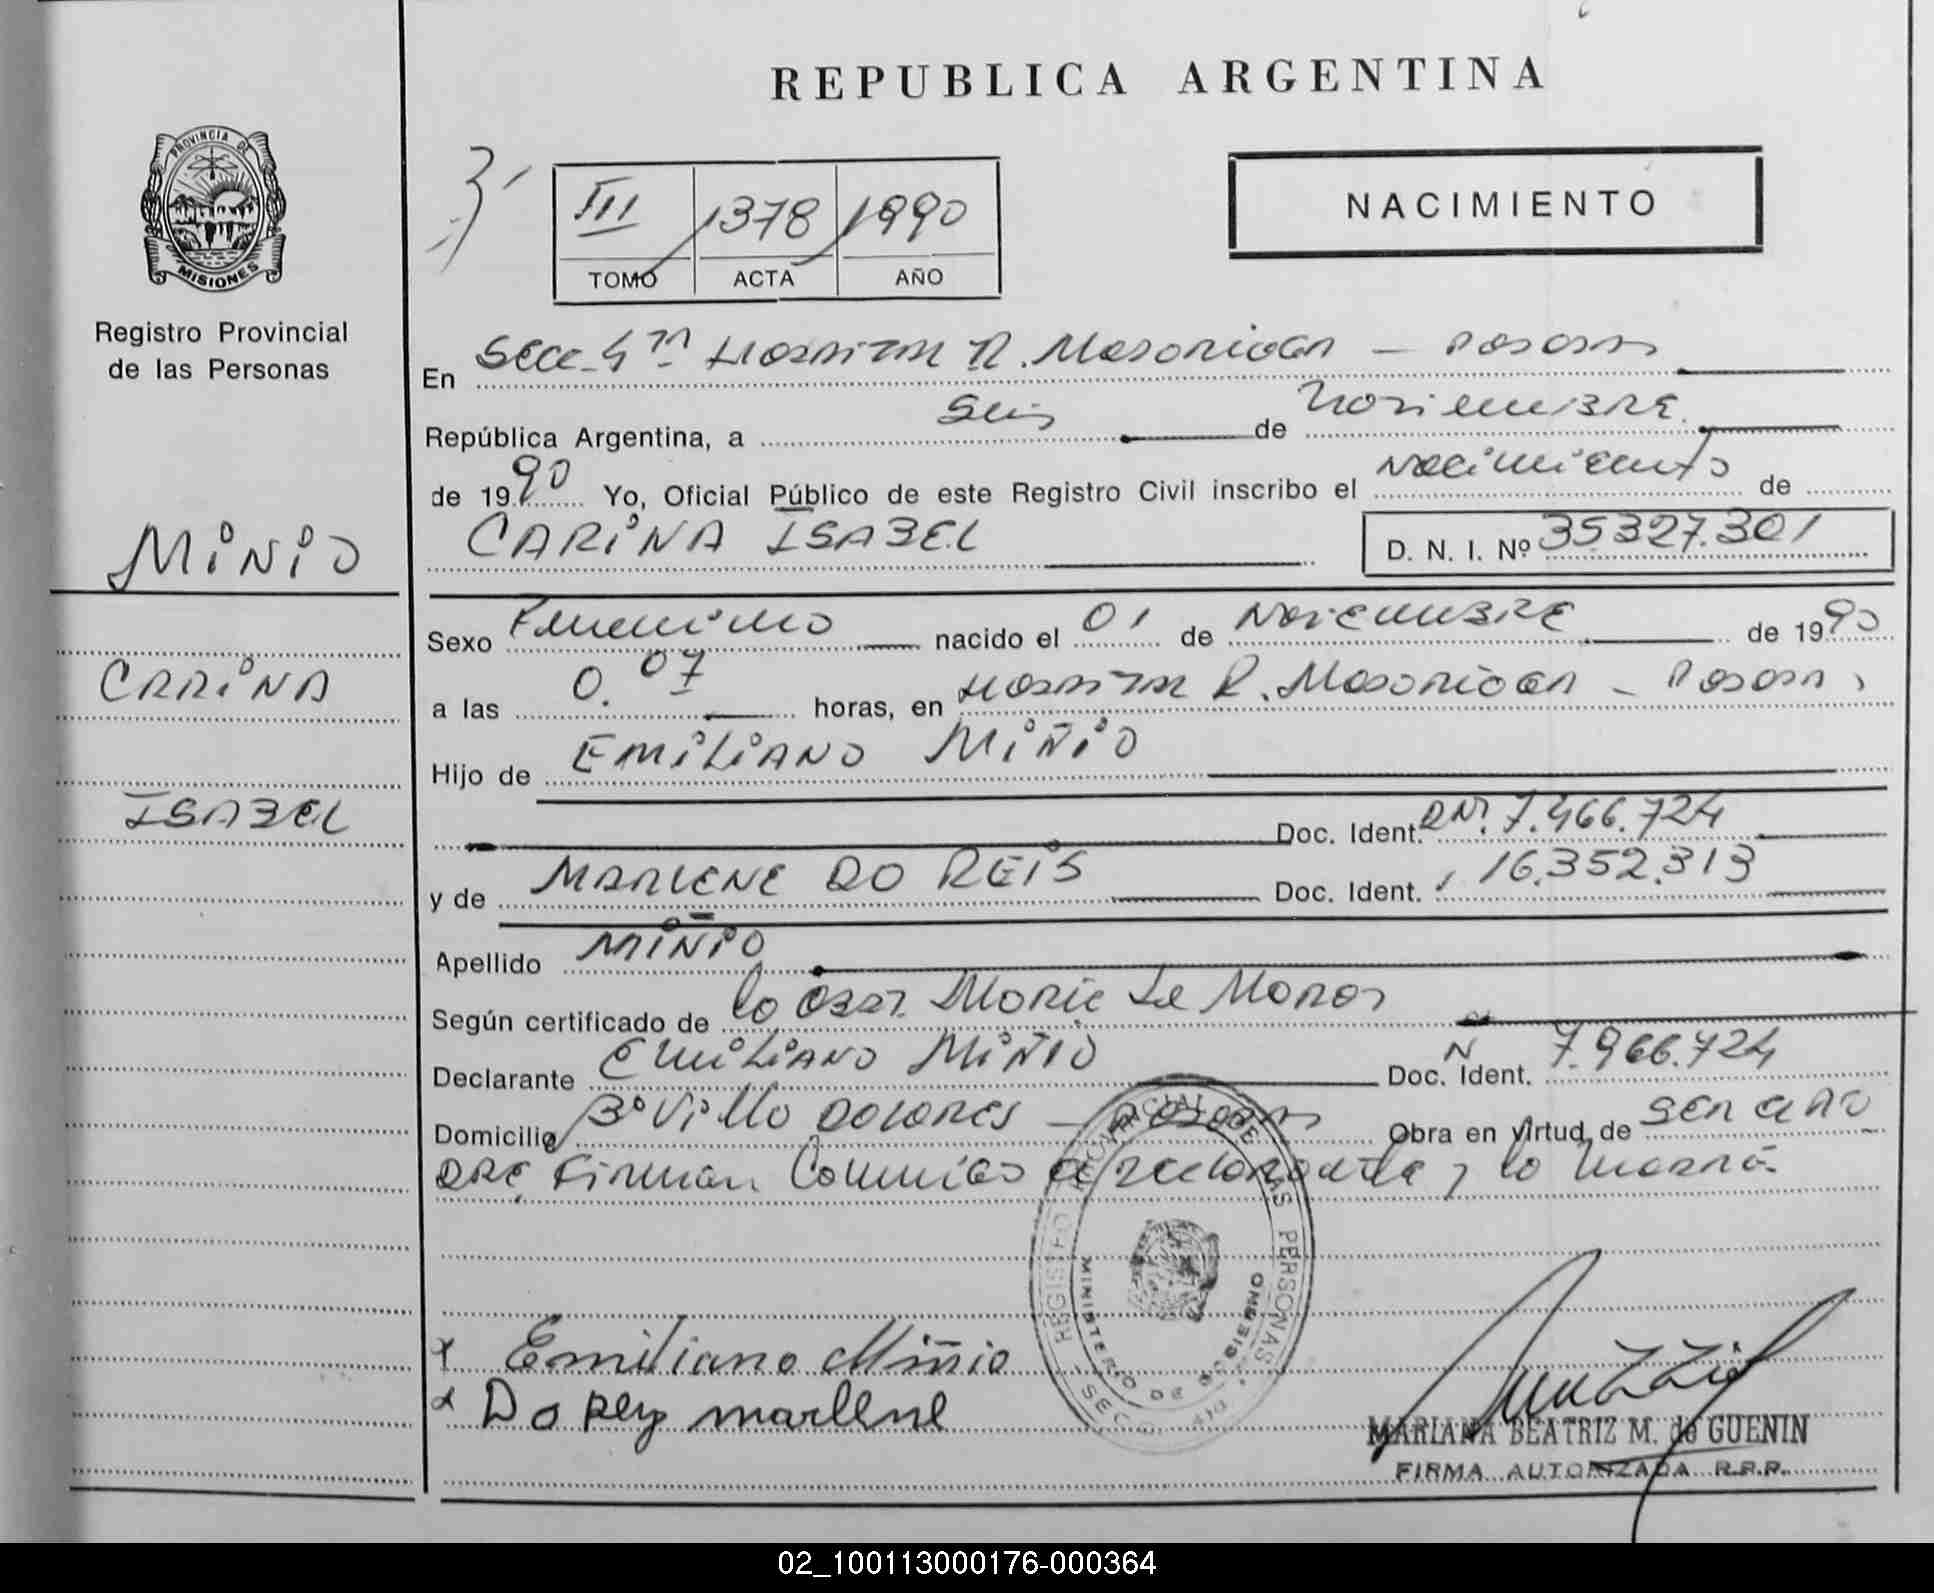 REPUBLICA ARGENTINA
PROVINCIA DE
MISIONES
Registro Provincial
de las Personas
III 1378 1990
TOMO ACTA AÑO
NACIMIENTO
En Secc. 4ta Hospital R. Madariaga - Posadas
República Argentina, a Seis de Noviembre
de 1990 Yo, Oficial Público de este Registro Civil inscribo el Nacimiento de
CARINA ISABEL D. N. I. Nº 35327.301
MINIO
CARINA
ISABEL
Sexo Femenino nacido el 01 de Noviembre de 1990
a las 0.07 horas, en Hospital R. Madariaga - Posadas
Hijo de EMILIANO MIÑIO
Doc. Ident. DNI. 7.466.724
y de MARLENE DO REIS Doc. Ident. 16.352.313
Apellido MIÑIO
Según certificado de la Obst. Maria
Declarante EMILIANO MIÑIO Doc. Ident. 7.966.724
Domicilio Bº Villa Dolores - Posadas Obra en virtud de ser el pa
dre, Firman Conmigo el declarante y la madre.
REGISTRO PROVINCIAL DE LAS PERSONAS
MINISTERIO DE GOBIERNO
Emiliano Miñio
Do Reiz marlene
MARIANA BEATRIZ M. de GUENIN
FIRMA AUTORIZADA R.P.P.
02_100113000176-000364